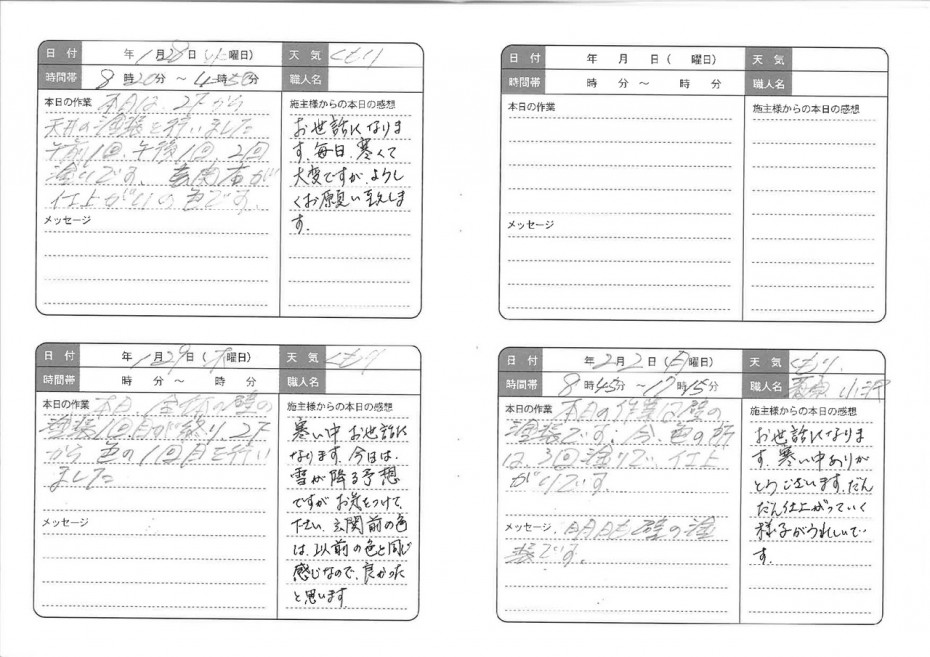 日付 年 1月28日(水曜日) 天気 くもり
時間帯 8時20分 ～ 4時50分 職人名
本日の作業 本日は、2Fから
天井の塗装を行いました
午前1回、午後1回、2回
塗りです、玄関右が
仕上がりの色です。
メッセージ
施主様からの本日の感想
お世話になりま
す。毎日、寒くて
大変ですが、よろし
くお願い致しま
す。
日付 年 月 日( 曜日) 天気
時間帯 時 分 ～ 時 分 職人名
本日の作業
メッセージ
施主様からの本日の感想
日付 年 1月29日(木曜日) 天気 くもり
時間帯 時 分 ～ 時 分 職人名
本日の作業 本日、全体の壁の
塗装1回目が終り、2F
から色の1回目を行い
ました
メッセージ
施主様からの本日の感想
寒い中 お世話に
なります。今日は、
雪が降る予想
ですが お気をつけて
下さい。玄関前の色
は、以前の色と同じ
感じなので、良かった
と思います
日付 年 2月2日(月曜日) 天気 くもり
時間帯 8時45分 ～ 17時15分 職人名 小沢
本日の作業 本日の作業は壁の
塗装です。今、色の所
は、3回塗りで、仕上
がりです。
メッセージ、明日も壁の塗
装です。
施主様からの本日の感想
お世話になりま
す。寒い中ありが
とうございます。だん
だん仕上がっていく
様子がうれしいで
す。